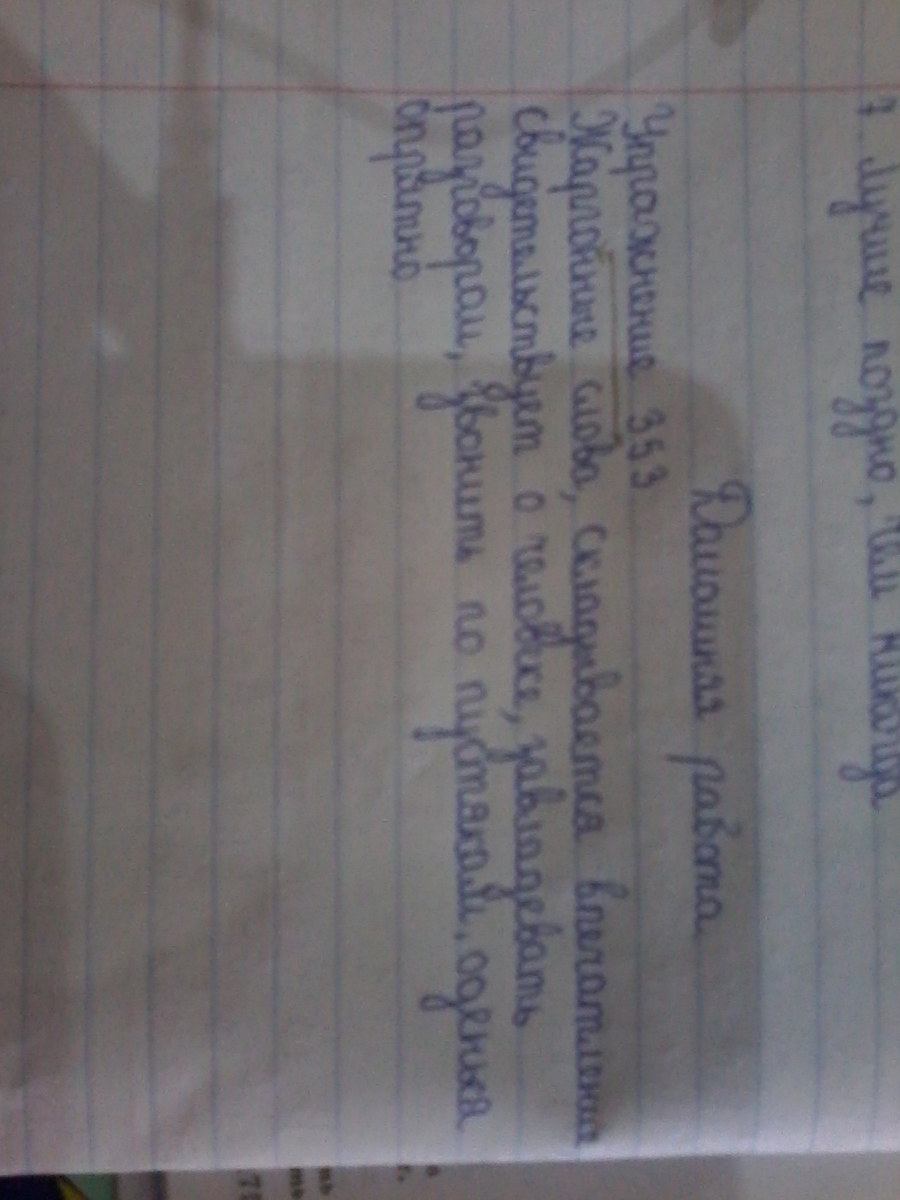 7 Лучше поздно, чем никогда
Домашняя работа
Упражнение 353
Жаргонные слова, складывается впечатление
свидетельствует о человеке, завладевать
разговором, звонить по пустякам, оденься
опрятно